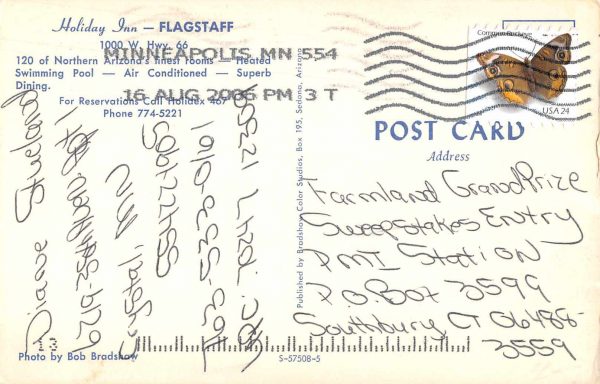 Holiday Inn — FLAGSTAFF
1000 W. Hwy. 66
120 of Northern Arizona's finest rooms — Heated
Swimming Pool — Air Conditioned — Superb
Dining.
For Reservations Call Holidex 467
Phone 774-5221
MINNEAPOLIS MN 554
16 AUG 2006 PM 3 T
Common Buckeye
USA 24
POST CARD
Address
Farmland Grand Prize
Sweepstakes Entry
PMI Station
P.O. Box 3599
Southbury CT 06488-
3559
Diane
Crystal, MN
Published by Bradshaw Color Studios, Box 195, Sedona, Arizona
Photo by Bob Bradshaw
S-57508-5